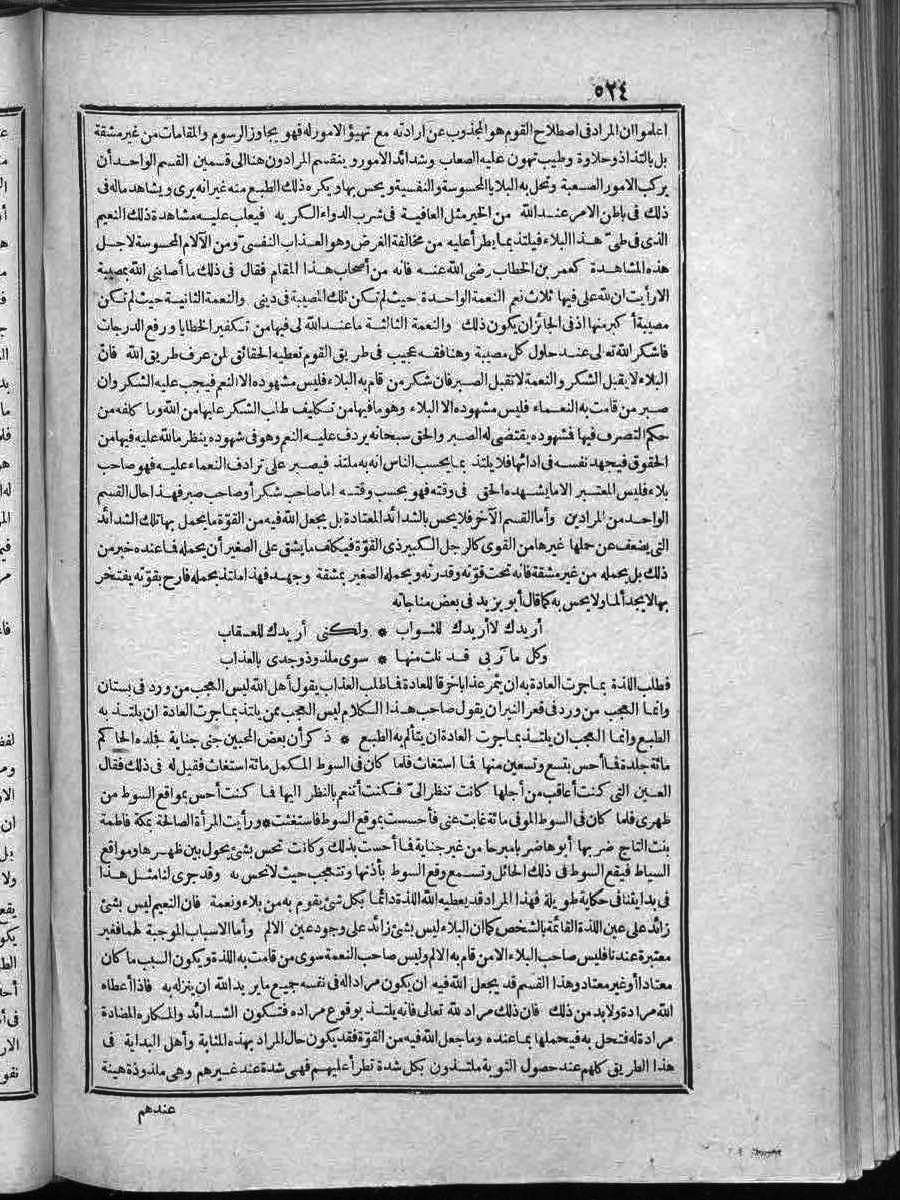 ٥٢٤
اعلموا ان المراد فى اصطلاح القوم هو المجذوب عن ارادته مع تهيؤ الامور له فهو يجاوز الرسوم والمقامات من غير مشقة
بل بالتذاذ وحلاوة وطيب تهون عليه الصعاب وشدائد الامور وينقسم المرادون هنا الى قسمين القسم الواحد أن
يركب الامور الصعبة وتحل به البلايا المحسوسة والنفسية ويحس بها ويكره ذلك الطبع منه غير انه يرى ويشاهد ماله فى
ذلك فى باطن الامر عند الله من الخير مثل العافية فى شرب الدواء الكريه فيغلب عليه مشاهدة ذلك النعيم
الذى فى طىّ هذا البلاء فيلتذ بما يطرأ عليه من مخالفة الغرض وهو العذاب النفسىّ ومن الآلام المحسوسة لاجل
هذه المشاهدة كعمر بن الخطاب رضى الله عنه فانه من أصحاب هذا المقام فقال فى ذلك ما أصابنى الله بمصيبة
الا رأيت ان لله على فيها ثلاث نعم النعمة الواحدة حيث لم تكن تلك المصيبة فى دينى والنعمة الثانية حيث لم تكن
مصيبة أكبر منها اذ فى الجائز ان يكون ذلك والنعمة الثالثة ما عند الله لى فيها من تكفير الخطايا ورفع الدرجات
فاشكر الله تعالى عند حلول كل مصيبة وهنا فقه عجيب فى طريق القوم تعطيه الحقائق لمن عرف طريق الله فانّ
البلاء لا يقبل الشكر والنعمة لا تقبل الصبر فان شكر من قام به البلاء فليس مشهوده الا النعم فيجب عليه الشكر وان
صبر من قامت به النعماء فليس مشهوده الا البلاء وهو ما فيها من تكليف طلب الشكر عليها من الله وما كلفه من
حكم التصرف فيها فشهوده يقتضى له الصبر والحق سبحانه يردف عليه النعم وهو فى شهوده ينظر ما لله عليه فيها من
الحقوق فيجهد نفسه فى ادائها فلا يلتذ بما يحسب الناس انه به ملتذ فيصبر على ترادف النعماء عليه فهو صاحب
بلاء فليس المعتبر الا ما يشهده الحق فى وقته فهو بحسب وقته اما صاحب شكر أو صاحب صبر فهذا حال القسم
الواحد من المرادين وأما القسم الآخر فلا يحس بالشدائد المعتادة بل يجعل الله فيه من القوّة ما يحمل بها تلك الشدائد
التى يضعف عن حملها غيرها من القوى كالرجل الكبير ذى القوّة فيكلف ما يشق على الصغير أن يحمله فما عنده خبر من
ذلك بل يحمله من غير مشقة فانه تحت قوّته وقدرته ويحمله الصغير بمشقة وجهد فهذا ملتذ بحمله فارح بقوّته يفتخر
بها لا يجد ألما ولا يحس به كما قال أبو يزيد فى بعض مناجاته
أريدك لا أريدك للثواب * ولكنى أريدك للعقاب
وكل مآربى قد نلت منها * سوى ملذوذ وجدى بالعذاب
فطلب اللذة بما جرت العادة به ان يثمر عذابا خرقا للعادة فاطلب العذاب يقول أهل الله ليس العجب من ورد فى بستان
وانما العجب من ورد فى قعر النيران يقول صاحب هذا الكلام ليس العجب ممن يلتذ بما جرت العادة ان يلتذ به
الطبع وانما العجب ان يلتذ بما جرت العادة ان يتألم به الطبع * ذكر أن بعض المحبين جنى جناية فجلده الحاكم
مائة جلدة فما أحس بتسع وتسعين منها فما استغاث فلما كان فى السوط المكمل مائة استغاث فقيل له فى ذلك فقال
العين التى كنت أعاقب من أجلها كانت تنظر الىّ فكنت أتنعم بالنظر اليها فما كنت أحس بمواقع السوط من
ظهرى فلما كان فى السوط الموفى مائة غابت عنى فأحسست بموقع السوط فاستغثت * ورأيت المرأة الصالحة بمكة فاطمة
بنت التاج ضربها أبوها ضربا مبرحا من غير جناية فما أحست بذلك وكانت تحس بشئ يحول بين ظهرها ومواقع
السياط فيقع السوط فى ذلك الحائل وتسمع وقع السوط بأذنها وتتعجب حيث لا تحس به وقد جرى لنا مثل هذا
فى بدايتنا فى حكاية طويلة فهذا المراد قد يعطيه الله اللذة دائما بكل شئ يقوم به من بلاء ونعمة فان النعيم ليس بشئ
زائد على عين اللذة القائمة بالشخص كما ان البلاء ليس بشئ زائد على وجود عين الالم وأما الاسباب الموجبة لهما فغير
معتبرة عندنا فليس صاحب البلاء الا من قام به الالم وليس صاحب النعمة سوى من قامت به اللذة ويكون السبب ما كان
معتادا أو غير معتاد وهذا القسم قد يجعل الله فيه ان يكون مراد اله فى نفسه جميع ما يريد الله ان ينزله به فاذا أعطاه
الله مراده ولا بد من ذلك فان ذلك مراد لله تعالى فانه يلتذ بوقوع مراده فتكون الشدائد والمكاره المضادة
مرادة له فتحل به فيحملها بما عنده وما جعل الله فيه من القوّة فقد يكون حال المراد بهذه المثابة وأهل البداية فى
هذا الطريق كلهم عند حصول التوبة ملتذون بكل شدة تطرأ عليهم فهى شدة عند غيرهم وهى ملذوذة هينة
عندهم